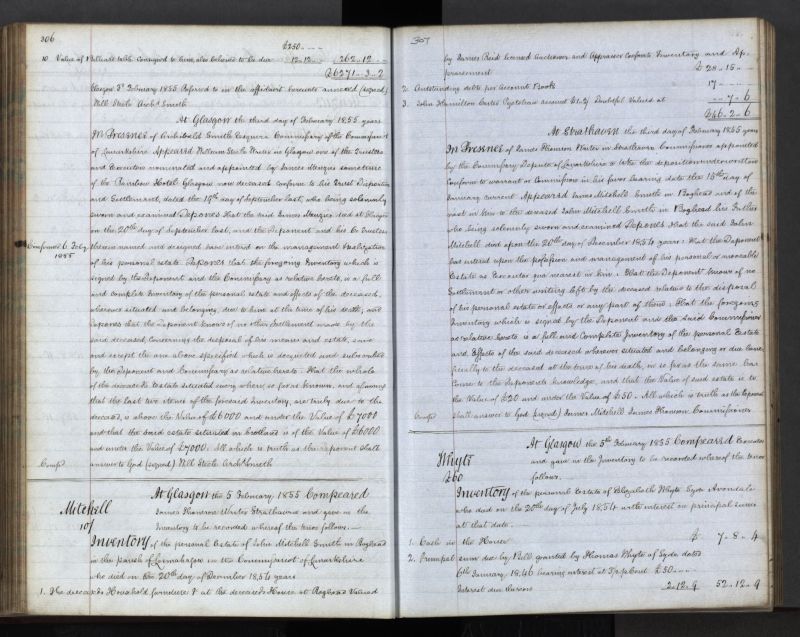 306
£250 - - -
10 Value of 1 Billiard table Consigned to him, also believed to be due 12-12- - 262-12- -
£6271-3-2
Glasgow 3d February 1855 Referred to in the affidavit hereunto annexed (signed)
Will Steele Archd Smith
At Glasgow the third day of February 1855 years
In Presence of Archibald Smith Esquire Commissary of the Commissariot
of Lanarkshire Appeared William Steele Writer in Glasgow one of the Trustees
and Executors nominated and appointed by James Menzies sometime
of the Rainbow Hotel Glasgow now deceased conform to his Trust Disposition
and Settlement, dated the 19th day of September last, who being solemnly
sworn and examined Depones that the said James Menzies died at Glasgow
on the 20th day of September last, and the Deponent and his Co Trustees
therein named and designed have entered on the management & realization
Confirmed 6 Feby
1855
of his personal estate Depones that the foregoing Inventory which is
signed by the Deponent and the Commissary as relative hereto, is a full
and complete Inventory of the personal estate and effects of the deceased,
wherever situated and belonging, due to him at the time of his death; and
Depones that the Deponent knows of no other Settlement made by the
said deceased concerning the disposal of his means and estate, save
and except the one above specified which is docqueted and subscribed
by the Deponent and Commissary as relative hereto. That the whole
of the deceaseds Estate situated every where, so far as known, and assuming
that the last two items of the foresaid Inventory, are truly due to the
deceased, is above the Value of £6000 and under the Value of £7000
and that the said estate situated in Scotland is of the Value of £6000
and under the Value of £7000. All which is truth as the Deponent shall
answer to God (signed) Will Steele Archd Smith
Compd
At Glasgow the 5 February 1855 Compeared
Mitchell
James Thomson Writer Strathaven and gave in the
Inventory to be recorded whereof the tenor follows.—
Inventory of the personal Estate of John Mitchell Smith in Boghead
in the Parish of Lesmahagow in the Commissariot of Lanarkshire
who died on the 20th day of December 1854 years
1. The deceaseds Household furniture &c at the deceaseds House at Boghead Valued
307
by James Reid licensed Auctioneer and Appraiser conform to Inventory and Ap-
praisement £28-15- -
2. Outstanding debts per Account Book 17- - -
3. John Hamilton Carter Capteleux account £1.2/ Doubtful Valued at - -7-6
£46-2-6
At Strathaven the third day of February 1855 years
In Presence of James Thomson Writer in Strathaven Commissioner appointed
by the Commissary Depute of Lanarkshire to take the deposition underwritten
conform to warrant or Commission in his favor bearing date the 15th day of
January current Appeared James Mitchell Smith in Boghead and of the
next in Kin to the deceased John Mitchell Smith in Boghead his Father
who being solemnly sworn and examined Depones That the said John
Mitchell died upon the 20th day of December 1854 years: That the Deponent
has entered upon the possession and management of his personal or moveable
Estate as Executor qua nearest in kin. That the Deponent knows of no
Settlement or other writing left by the deceased relative to the disposal
of his personal estate or effects or any part of them: That the foregoing
Inventory which is signed by the Deponent and the said Commissioner
as relative hereto is a full and Complete Inventory of the personal Estate
and Effects of the said deceased wherever situated and belonging or due bene-
ficially to the deceased at the time of his death, in so far as the same has
Come to the Deponents knowledge, and that the Value of said estate is to
the Value of £20 and under the Value of £50. All which is truth as the Deponent
shall answer to God (signed) James Mitchell James Thomson Commissioner
Compd
At Glasgow the 5th February 1855 Compeared Executor
Whyte
£60
and gave in the Inventory to be recorded whereof the tenor
follows.
Inventory of the personal Estate of Elizabeth Whyte Syde Avondale
who died on the 20th day of July 1854 with interest on principal sums
at that date.
1. Cash in the House £ 7-8-4
2. Principal sum due by Bill granted by Thomas Whyte of Syde dated
6th January 1846 bearing interest at 5 p Cent £50- - -
Interest due thereon 2-12-9 52-12-9